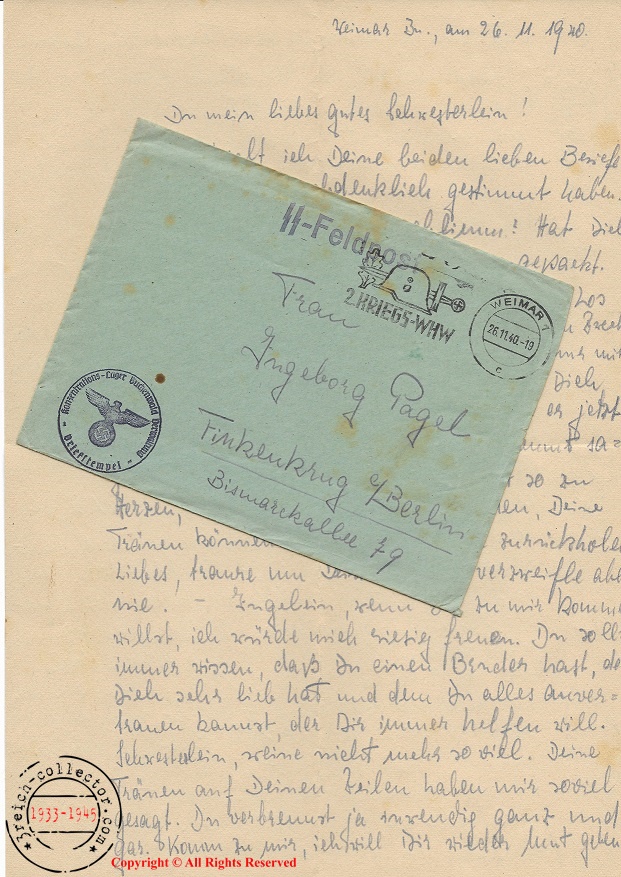 Weimar Bu., am 26. 11. 1940.
Du mein liebes gutes Schwesterlein!
ich Deine beiden lieben Briefe
gestimmt haben.
Hat Dich
gepackt.
Los
mir
Dich,
er jetzt
sa=
so zu
Herzen, Deine
Tränen können zurückholen
Liebes, traure um verzweifle aber
nie. - Ingelein, wenn zu mir komme
willst, ich würde mich riesig freuen. Du soll
immer wissen, daß Du einen Bruder hast, de
Dich sehr lieb hat und dem Du alles anver=
trauen kannst, der Dir immer helfen will.
Schwesterlein, weine nicht mehr so viel. Deine
Tränen auf Deinen Zeilen haben mir soviel
gesagt. Du verbrennst ja inwendig ganz und
gar. Komm zu mir, ich will Dir wieder Mut geben
SS-Feldpost
2. KRIEGS-WHW
WEIMAR 1
26.11.40.-19
c
Frau
Ingeborg Pagel
Finkenkrug b/Berlin
Bismarckallee 79
Konzentrations-Lager Buchenwald
- Briefstempel -
3reich-collector.com
1933-1945
Copyright © All Rights Reserved